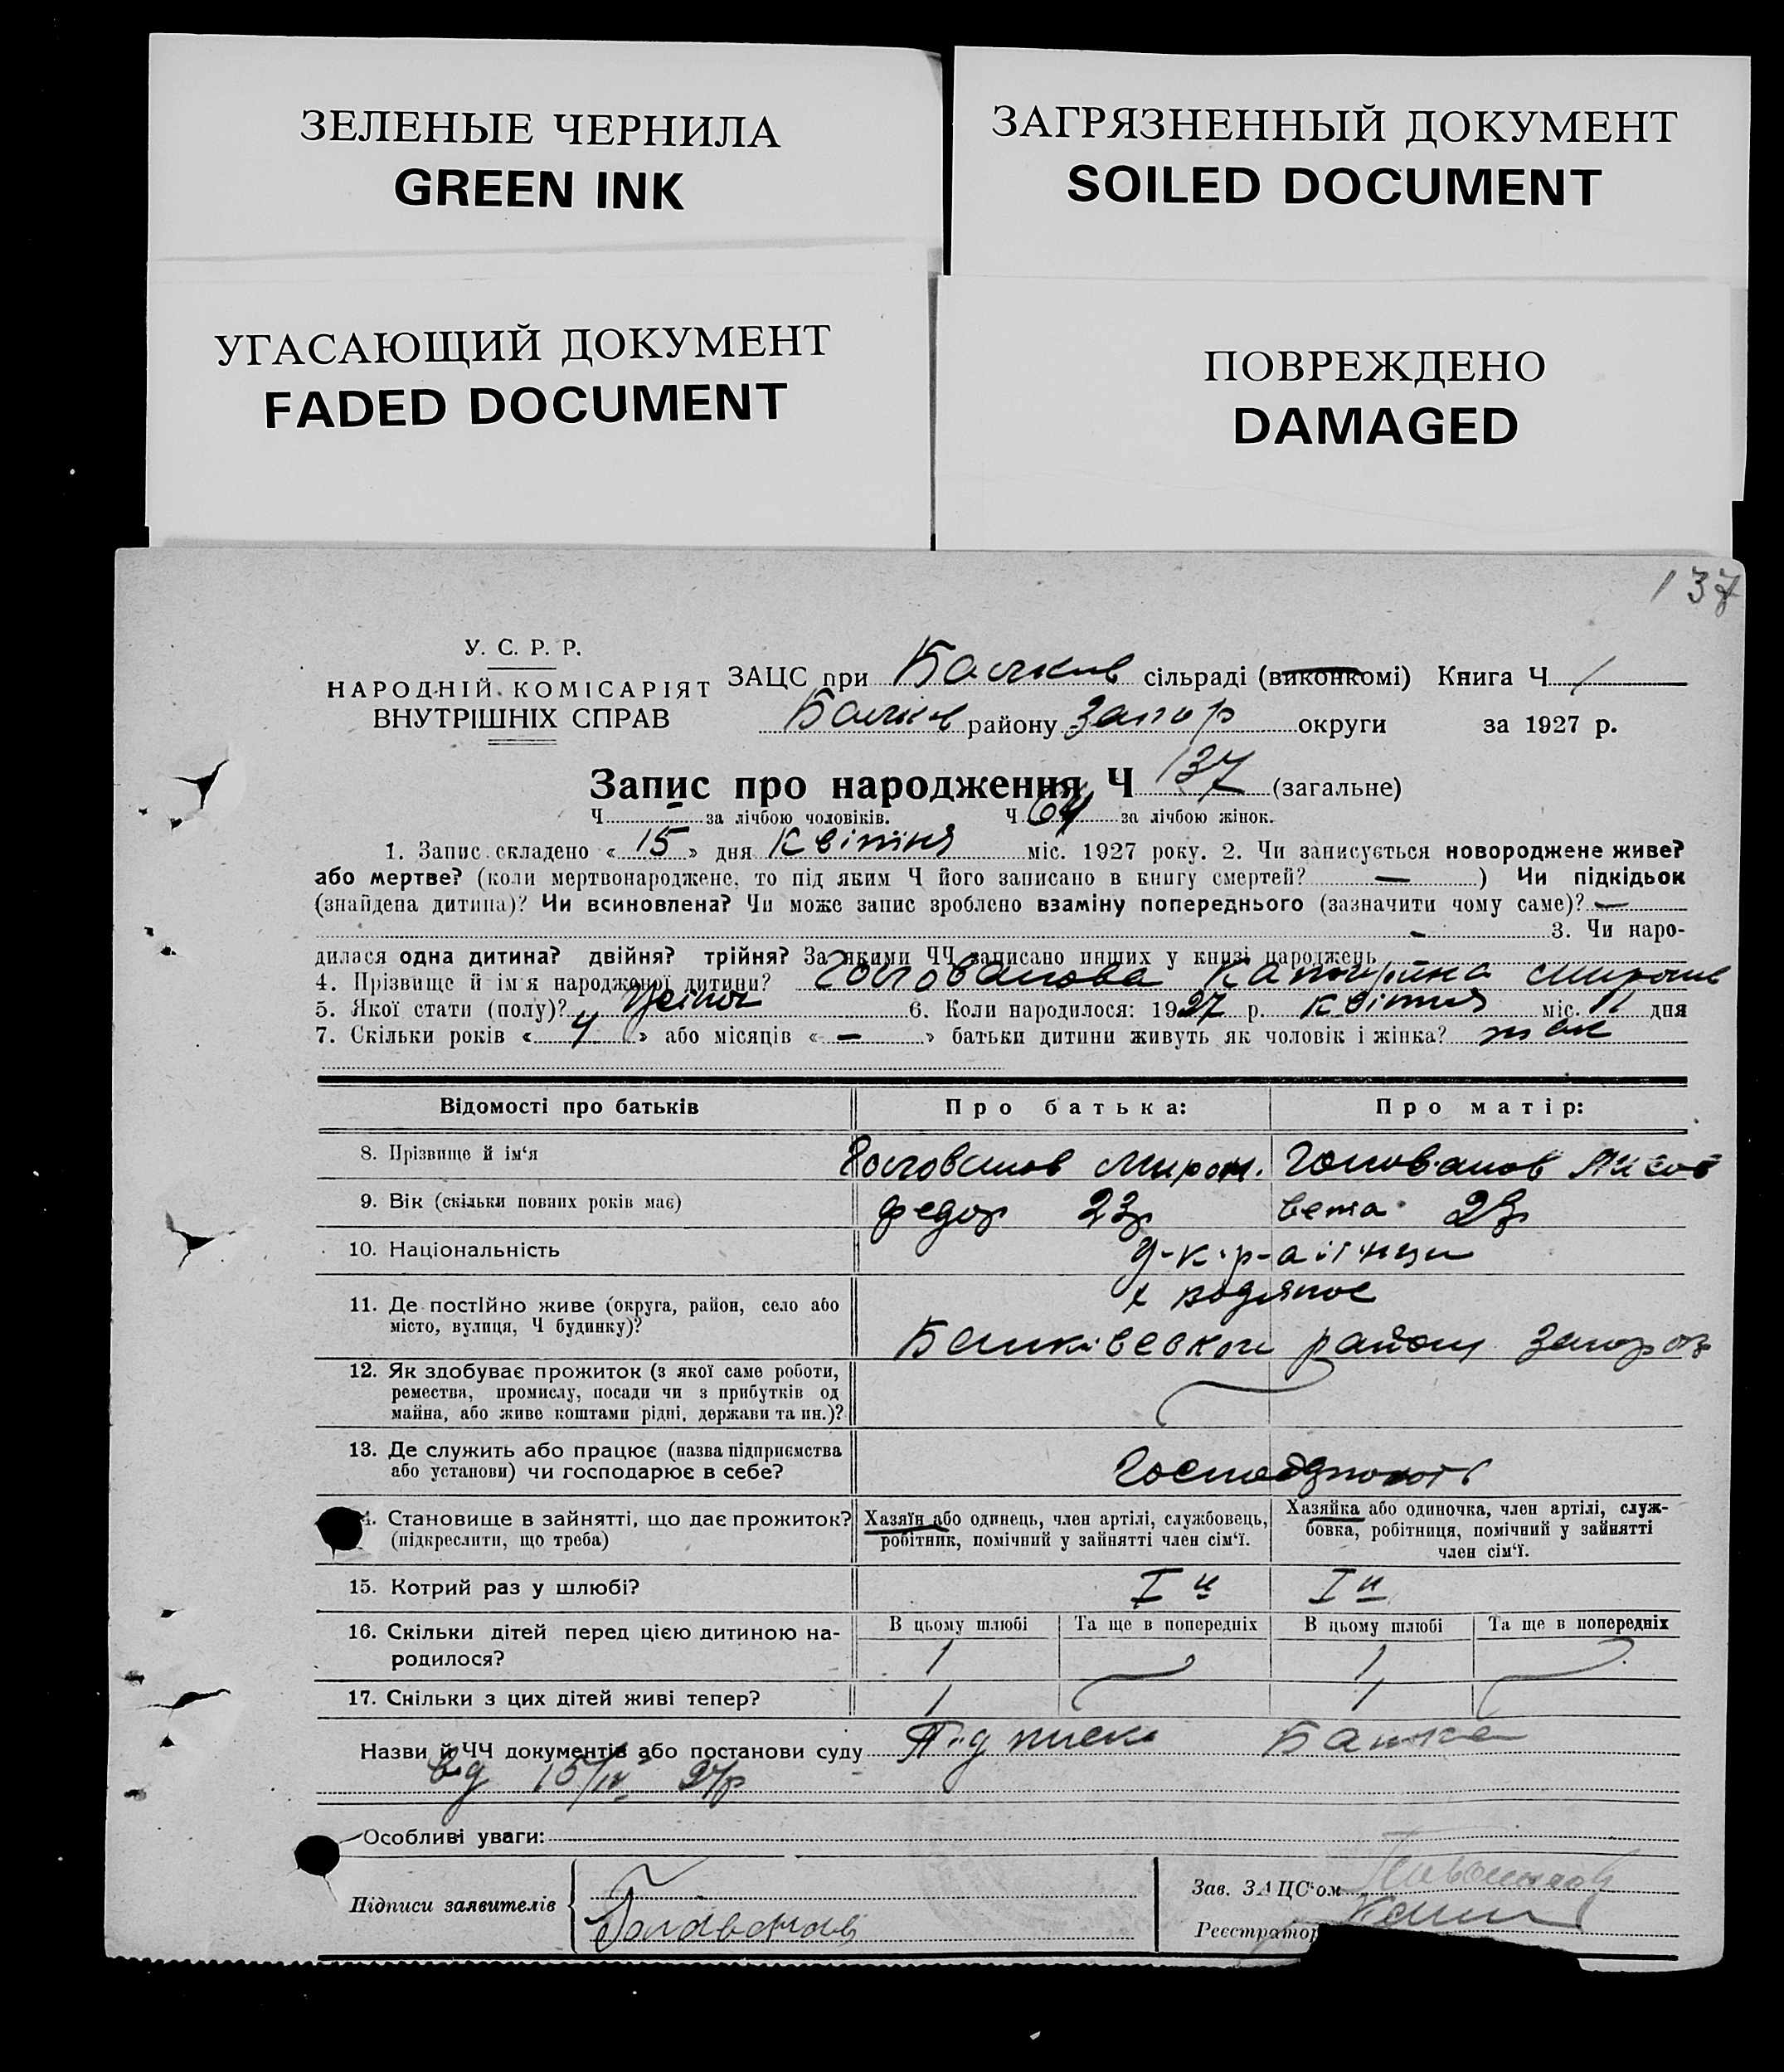 ЗЕЛЕНЫЕ ЧЕРНИЛА
GREEN INK
ЗАГРЯЗНЕННЫЙ ДОКУМЕНТ
SOILED DOCUMENT
УГАСАЮЩИЙ ДОКУМЕНТ
FADED DOCUMENT
ПОВРЕЖДЕНО
DAMAGED
137
У. С. Р. Р.
НАРОДНІЙ КОМІСАРІЯТ
ВНУТРІШНІХ СПРАВ
ЗАЦС при сільраді (виконкомі) Книга Ч 1
району Запор округи за 1927 р.
Запис про народження Ч 137 (загальне)
Ч - за лічбою чоловіків. Ч 64 за лічбою жінок.
1. Запис складено « 15 » дня Квітня міс. 1927 року. 2. Чи записується новороджене живе?
або мертве? (коли мертвонароджене, то під яким Ч його записано в книгу смертей? — ) Чи підкідьок
(знайдена дитина)? Чи всиновлена? Чи може запис зроблено взаміну попереднього (зазначити чому саме)? —
- 3. Чи наро-
дилася одна дитина? двійня? трійня? За якими ЧЧ записано инших у книзі народжень
4. Прізвище й ім'я народженої дитини? Голованова
5. Якої стати (полу)? жіноч 6. Коли народилося: 1927 р. квітня міс. 11 дня
7. Скільки років « 4 » або місяців « — » батьки дитини живуть як чоловік і жінка? так
Відомості про батьків Про батька: Про матір:
8. Прізвище й ім'я Голованов Мирон. Голованов Лисо
9. Вік (скільки повних років має) федор 23р вета 23р
10. Національність у-к-р-аїнци
11. Де постійно живе (округа, район, село або
місто, вулиця, Ч будинку)?
х водяное
район
12. Як здобуває прожиток (з якої саме роботи,
ремества, промислу, посади чи з прибутків од
майна, або живе коштами рідні, держави та ин.)?
13. Де служить або працює (назва підприємства
або установи) чи господарює в себе?
4. Становище в зайнятті, що дає прожиток?
(підкреслити, що треба)
Хазяїн або одинець, член артілі, службовець,
робітник, помічний у зайнятті член сім'ї.
Хазяйка або одиночка, член артілі, служ-
бовка, робітниця, помічний у зайнятті
член сім'ї.
15. Котрий раз у шлюбі? I й I й
16. Скільки дітей перед цією дитиною на-
родилося?
В цьому шлюбі Та ще в попередніх В цьому шлюбі Та ще в попередніх
1 1
17. Скільки з цих дітей живі тепер? 1 1
Назви й ЧЧ документів або постанови суду Підписка Батька
від 15/IV 27р
Особливі уваги:
Підписи заявителів
Голованов
Зав. ЗАЦС'ом
Реєстратор